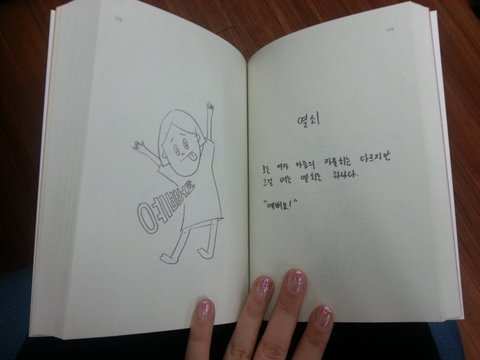 열쇠
모든 여자 마음의 자물쇠는 다르지만
그걸 여는 열쇠는 하나다.
"예뻐요!"